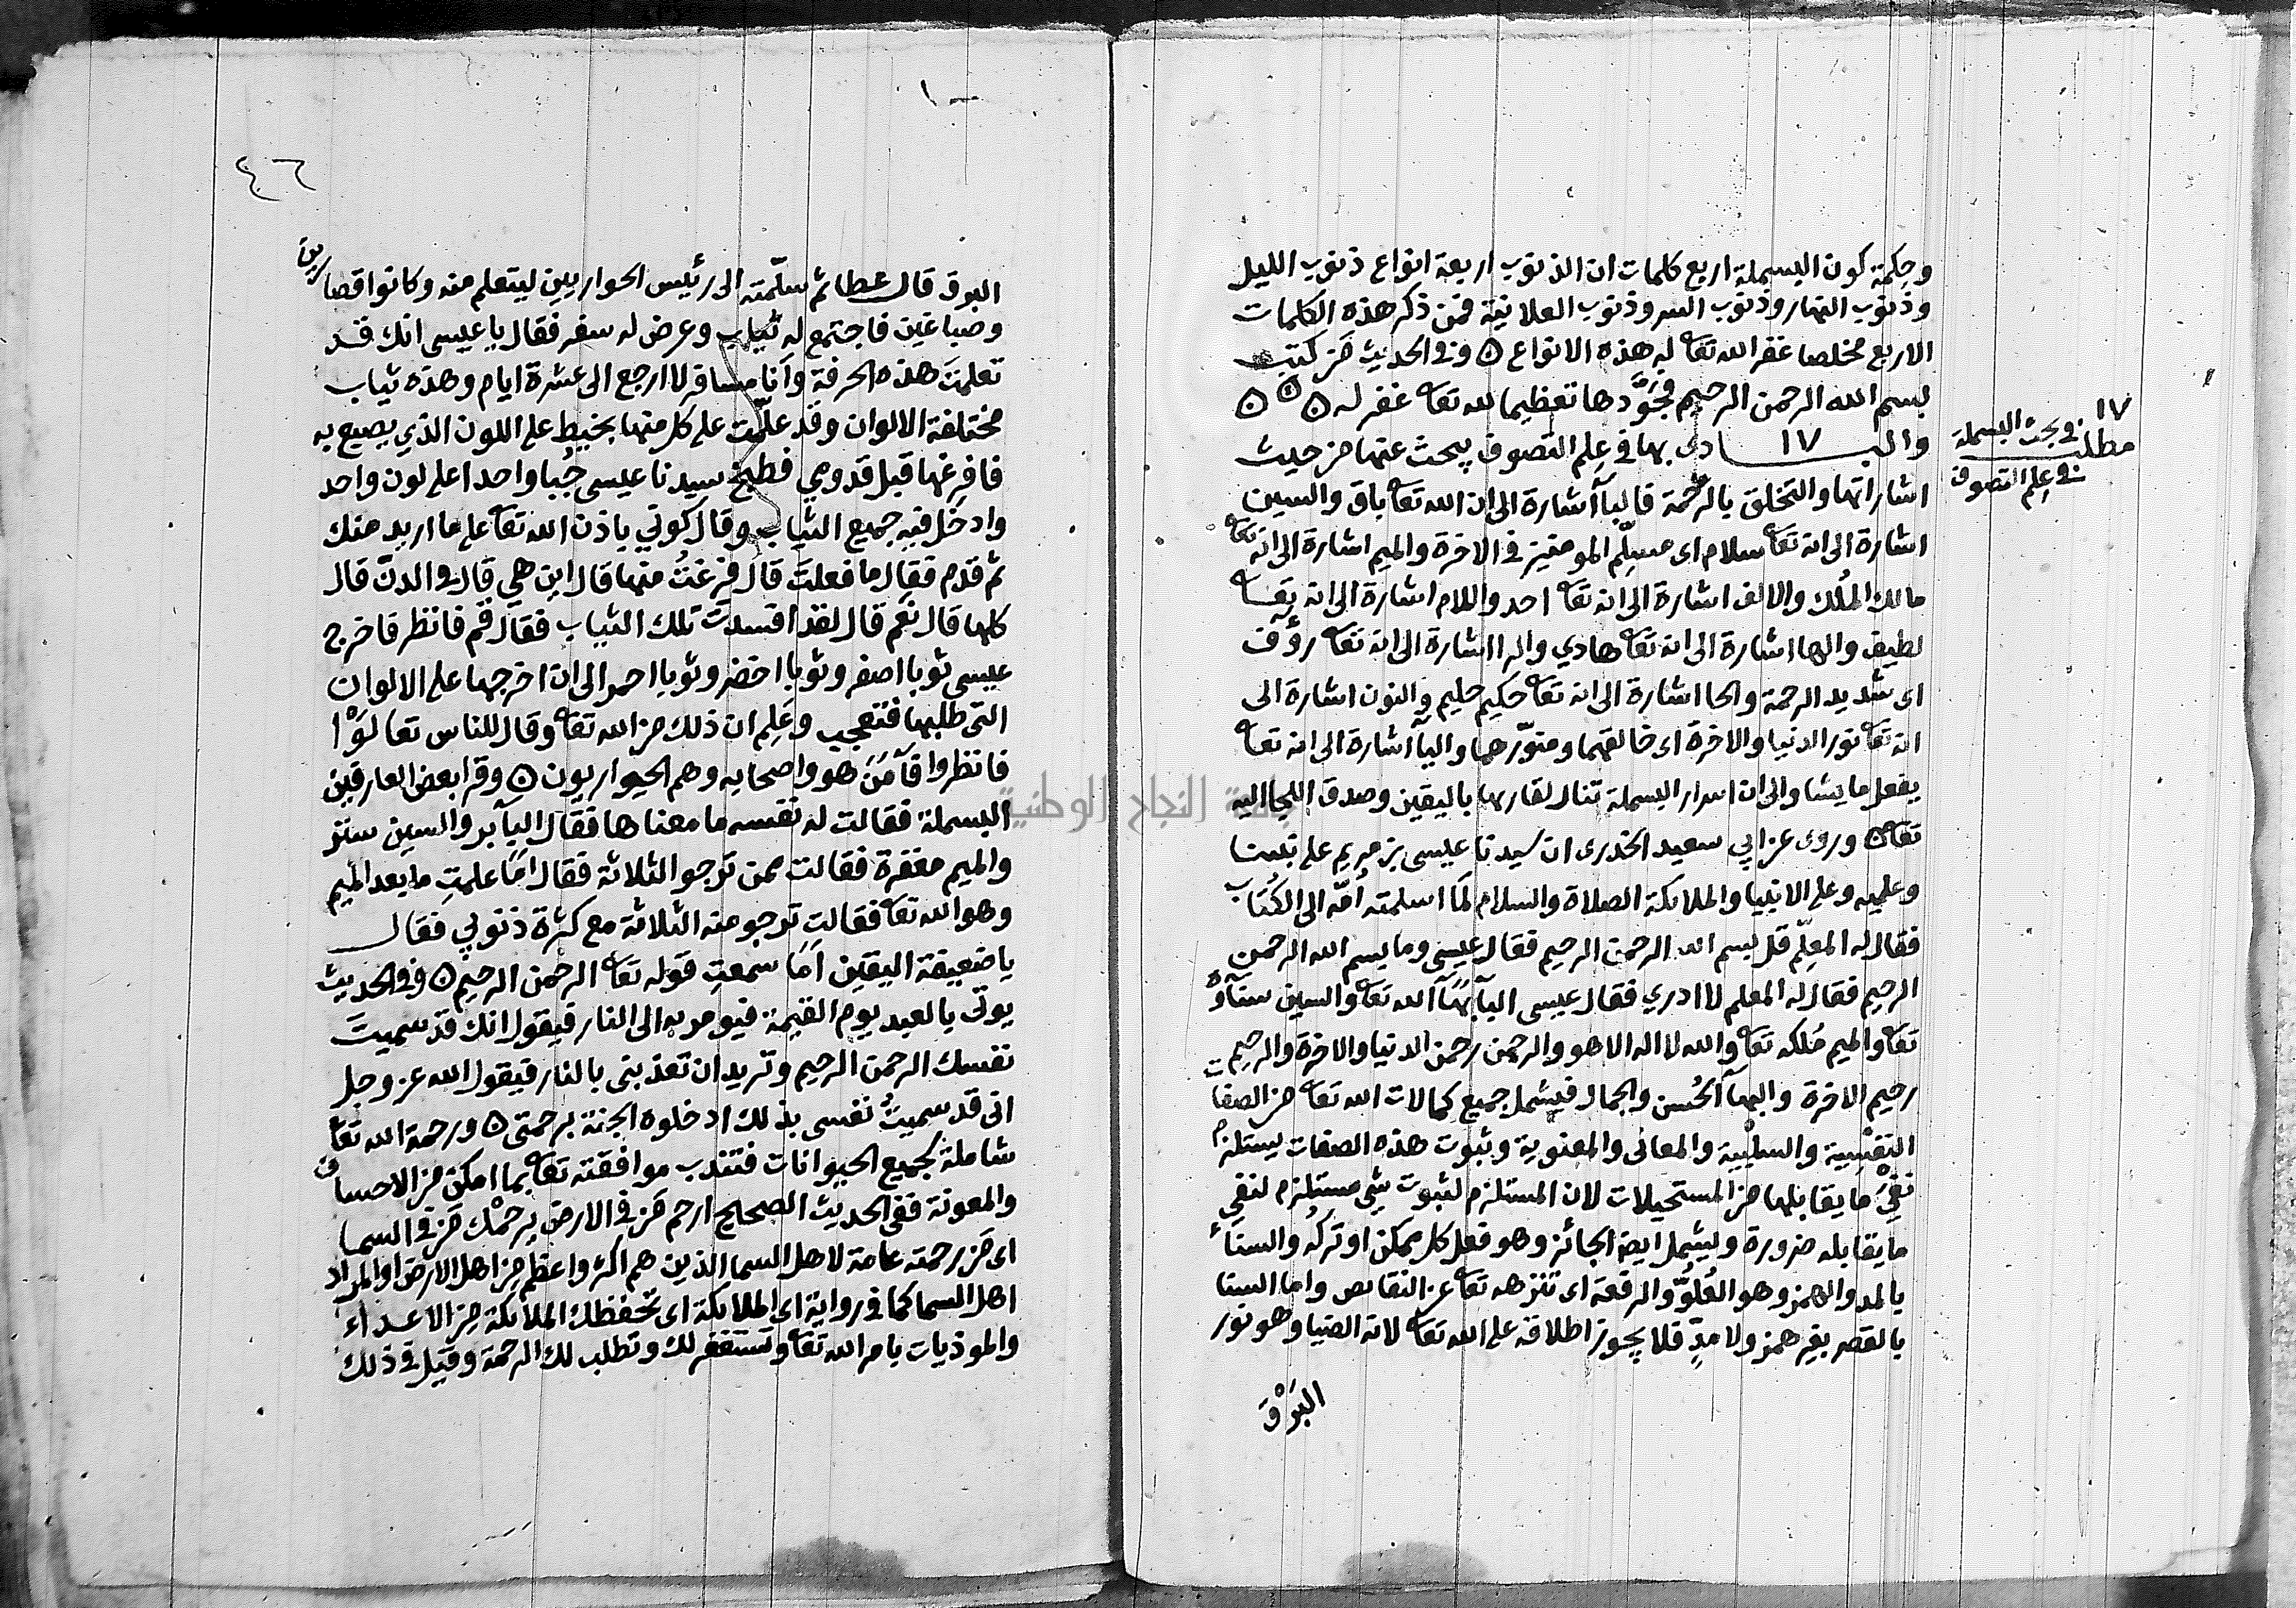 وحِكمة كون البسملة اربع كلمات ان الذنوب اربعة انواع ذنوب الليل
وذنوب النهار وذنوب السر وذنوب العلانية فمن ذكر هذه الكلمات
الاربع مخلصا غفر الله تعا له هذه الانواع ٥ وفي الحديث مَن كتب
بسم الله الرحمن الرحيم فجَوَّدها تعظيما لله تعا غفر له ٥ ٥ ٥
والبـــــادى بها في عِلم التصوف يبحث عنها من حيث
١٧
١٧
مطلب في بحث البسملة
في عِلم التصوف
اشاراتها والتخلق بالرحمة فالبآ اشارة الى ان الله تعا باق والسين
اشارة الى انه تعا سلام اى مسلِّم المومنين في الاخرة والميم اشارة الى انه تعا
مالك المُلك والالف اشارة الى انه تعا احد واللام اشارة الى انه تعا
لطيف والها اشارة الى انه تعا هادي والرا اشارة الى انه تعا رؤف
اى شديد الرحمة والحا اشارة الى انه تعا حكيم حليم والنون اشارة الى
انه تعا نور الدنيا والاخرة اى خالقهما ومنوّرهما واليآ اشارة الى انه تعا
يفعل ما يشا والى ان اسرار البسملة تنال لقاريها باليقين وصدق اللجا اليه
تعا ٥ وروى عن ابي سعيد الخدرى ان سيدنا عيسى بن مريم على نبينا
وعليه وعلى الانبيا والملائكة الصلاة والسلام لمَا اسلمته اُمّه الى الكُتاب
فقال له المعلّم قل بسم الله الرحمن الرحيم فقال عيسى وما بسم الله الرحمن
الرحيم فقال له المعلم لا ادري فقال عيسى البآ بهَآ الله تعا والسين سنآوُه
تعا والميم مُلكه تعا والله لا اله الا هو والرحمن رحمن الدنيا والاخرة والرحيم
رحيم الاخرة والبهآ الحُسن والجمال فيشمل جميع كمالات الله تعا من الصفات
النفْسية والسلْبية والمعانى والمعنوية وثبوت هذه الصفات يستلزم
نفيَ ما يقابلها من المستحيلات لان المستلزم لثبوت شي مستلزم لنفي
ما يقابله ضرورة ويشمل ايضا الجائز وهو فعل كل ممكن او تركُه والسنآء
بالمد والهمز وهو العُلوّ والرفعة اى تنزهه تعا عن النقايص واما السنا
بالقصر بغير همز ولا مدّ فلا يجوز اطلاقه على الله تعا لانه الضيا وهو نور
البَرْق
١٠
٤٦
البرق قال عطا ثم سلّمته الى رئيس الحواريين ليتعلم منه وكانوا قصارين
وصباغين فاجتمع له ثياب وعرض له سفر فقال يا عيسى انك قد
تعلمتَ هذه الحرفة وأنا مسافر لا ارجع الى عشرة ايام وهذه ثياب
مختلفة الالوان وقد علّمت على كل منها بخيط على اللون الذي يصبغ به
فافرغها قبل قدومي فطبخ سيدنا عيسى جُبا واحدا على لون واحد
وادخل فيه جميع الثياب وقال كوني باذن الله تعا على ما اريد منك
ثم قدم فقال ما فعلتَ قال فرغتُ منها قال اين هي قال في الدنّ قال
كلها قال نعم قال لقد افسدت تلك الثياب فقال قم فانظر فاخرج
عيسى ثوبا اصفر وثوبا اخضر وثوبا احمر الى ان اخرجها على الالوان
التى طلبها فتعجب وعَلِم ان ذلك من الله تعا وقال للناس تعالَوْا
فانظروا فآمَنَ هو واصحابه وهم الحواريون ٥ وقرا بعض العارفين
البسملة فقالت له نفسه ما معناها فقال البآ بر والسين ستر
والميم مغفرة فقالت ممن ترجو الثلاثة فقال امَا علمتِ ما بعد الميم
وهو الله تعا فقالت ترجو منه الثلاثة مع كثرة ذنوبي فقال
يا ضعيفة اليقين اَمَا سمعتِ قوله تعا الرحمن الرحيم ٥ وفي الحديث
يوتى بالعبد يوم القيمة فيومر به الى النار فيقول انك قد سميتَ
نفسك الرحمن الرحيم وتريد ان تعذبنى بالنار فيقول الله عز وجل
انى قد سميتُ نفسى بذلك ادخلوه الجنة برحمتى ٥ ورحمة الله تعا
شاملة لجميع الحيوانات فتندب موافقته تعا بما امكن من الاحسان
والمعونة ففي الحديث الصحيح ارحم مَن في الارض يرحمْك مَن في السما
اى مَن رحمته عامة لاهل السما الذين هم اكثر واعظم من اهل الارض او المراد
اهل السما كما في رواية اى الملائكة اى تحفظك الملائكة من الاعداء
والموذيات بامر الله تعا وتستغفر لك وتطلب لك الرحمة وقيل في ذلك
جامعة النجاح الوطنية